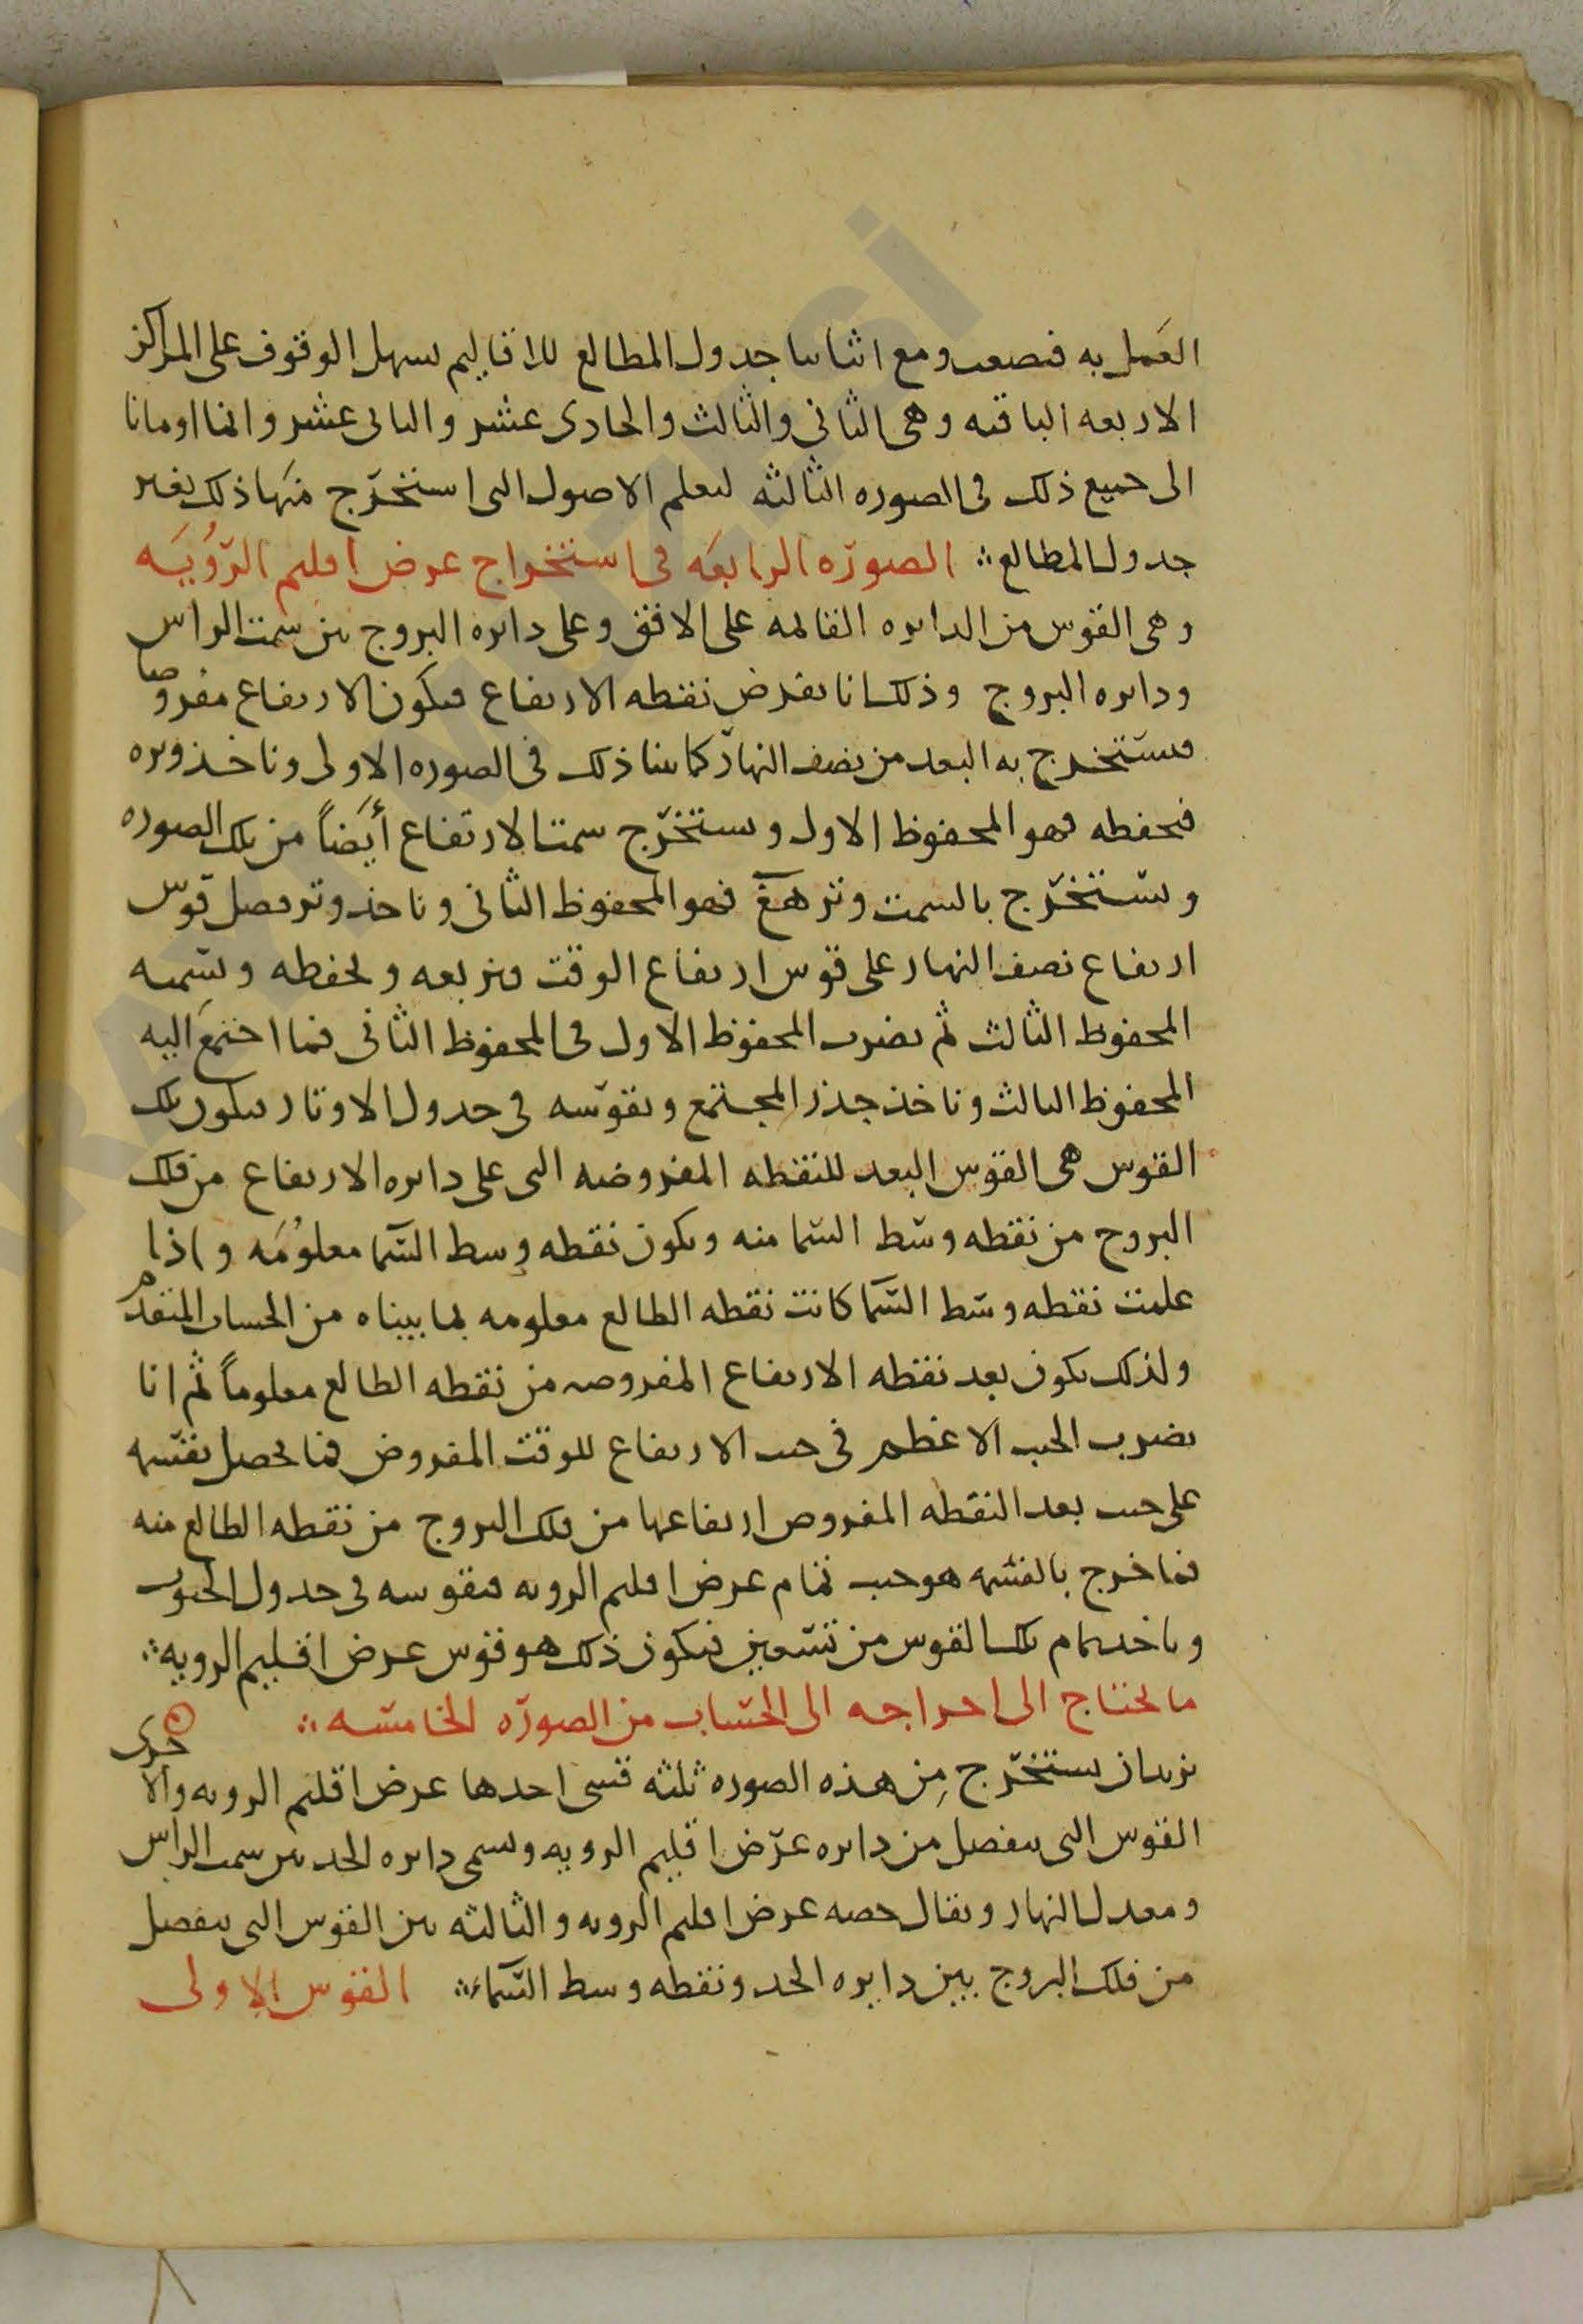 العمل به فيصعب ومع اثباتنا جدول المطالع للاقاليم يسهل الوقوف على المراكز
الاربعه الباقيه وهى الثانى والثالث والحادى عشر والثانى عشر وانما اومانا
الى جميع ذلك فى الصوره الثالثه ليعلم الاصول التى استخرج منها ذلك بغير
جدول المطالع ∴ الصورة الرابعه فى استخراج عرض اقليم الرؤيه
وهى القوس من الدايره القايمه على الافق وعلى دايره البروج بين سمت الراس
ودايره البروج وذلك انا نفرض نقطه الارتفاع فيكون الارتفاع مفروضا
فيستخرج به البعد من نصف النهار كما بينا ذلك فى الصوره الاولى وناخذ وتره
فنحفظه فهو المحفوظ الاول ونستخرج سمت الارتفاع أيضاً من تلك الصوره
ونستخرج بالسمت وتر فهو المحفوظ الثانى وناخذ وتر فصل قوس
ارتفاع نصف النهار على قوس ارتفاع الوقت فنربعه ونحفظه ونسميه
المحفوظ الثالث ثم نضرب المحفوظ الاول فى المحفوظ الثانى فما اجتمع اليه
المحفوظ الثالث وناخذ جذر المجتمع ونقوسه فى جدول الاوتار فيكون تلك
القوس هى القوس البعد للنقطه المفروضه التى على دايره الارتفاع من فلك
البروج من نقطه وسط السما منه ويكون نقطه وسط السما معلومه واذا
علمت نقطه وسط السما كانت نقطه الطالع معلومه بما بيناه من الحساب المتقدم
ولذلك يكون بعد نقطه الارتفاع المفروضه من نقطه الطالع معلوماً ثم انا
نضرب الجيب الاعظم فى جيب الارتفاع للوقت المفروض فما يحصل نقسمه
على جيب بعد النقطه المفروض ارتفاعها من فلك البروج من نقطه الطالع منه
فما خرج بالقسمه هو جيب تمام عرض اقليم الرويه فنقوسه فى جدول الجيوب
وناخذ تمام تلك القوس من تسعين فيكون ذلك هو قوس عرض اقليم الرويه ∴
ما يحتاج الى اخراجه الى الحساب من الصورة الخامسه ∴
نريد ان نستخرج من هذه الصوره ثلثه قسى احدها عرض اقليم الرويه والاخرى
القوس التى ينفصل من دايره عرض اقليم الرويه وسمى دايره الحد بين سمت الراس
ومعدل النهار ويقال حصه عرض اقليم الرويه والثالثه بين القوس التى ينفصل
من فلك البروج بين دايره الحد ونقطه وسط السماء ∴ القوس الاولى